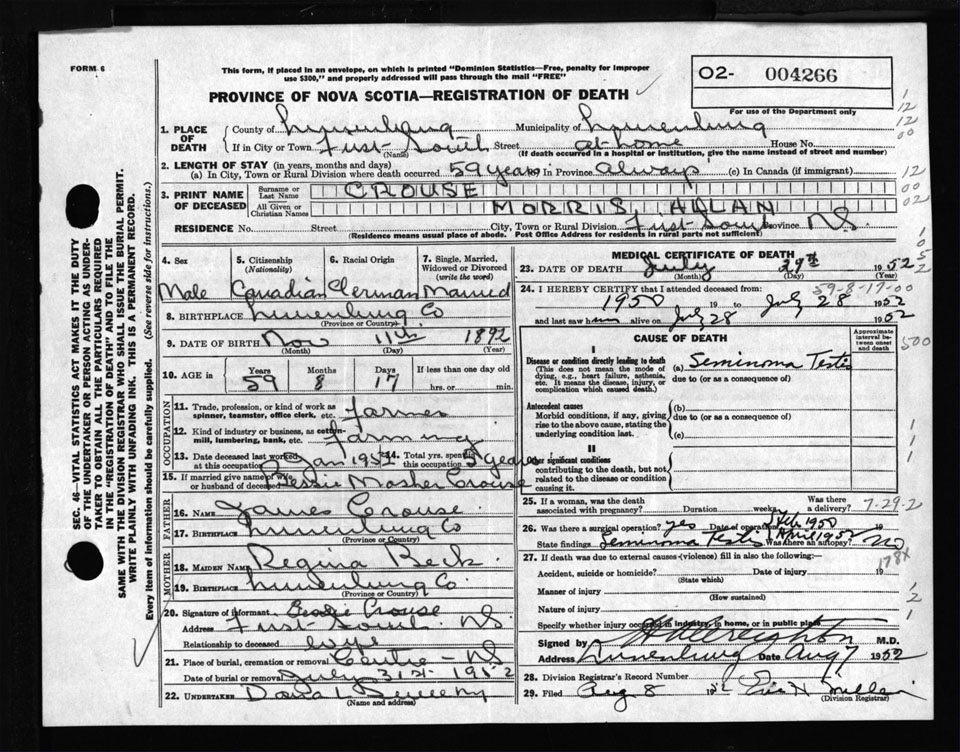 FORM 6
This form, if placed in an envelope, on which is printed "Dominion Statistics—Free, penalty for improper
use $300," and properly addressed will pass through the mail "FREE"
O2- 004266
For use of the Department only
PROVINCE OF NOVA SCOTIA—REGISTRATION OF DEATH
1. PLACE OF DEATH
County of Lunenburg Municipality of Lunenburg
If in City or Town First South Street at home House No.
(Name) (If death occurred in a hospital or institution, give the name instead of street and number)
2. LENGTH OF STAY (in years, months and days)
(a) In City, Town or Rural Division where death occurred 59 years (b) in Province always (c) In Canada (if immigrant)
3. PRINT NAME OF DECEASED
Surname or Last Name CROUSE
All Given or Christian Names MORRIS ALLAN
RESIDENCE No. Street City, Town or Rural Division First South Province NS
(Residence means usual place of abode. Post Office Address for residents in rural parts not sufficient)
4. Sex Male
5. Citizenship (Nationality) Canadian
6. Racial Origin German
7. Single, Married, Widowed or Divorced (write the word) Married
8. BIRTHPLACE Lunenburg Co
(Province or Country)
9. DATE OF BIRTH Nov 11th 1892
(Month) (Day) (Year)
10. AGE in Years 59 Months 8 Days 17 If less than one day
hrs. or min.
OCCUPATION
11. Trade, profession, or kind of work as
spinner, teamster, office clerk, etc. farmer
12. Kind of industry or business, as cotton-
mill, lumbering, bank, etc. farming
13. Date deceased last worked at this occupation Jan 1952 14. Total yrs. spent in this occupation years
15. If married give name of wife
or husband of deceased Bessie Mosher Crouse
FATHER
16. NAME James Crouse
17. BIRTHPLACE Lunenburg Co
(Province or Country)
MOTHER
18. MAIDEN NAME Regina Beck
19. BIRTHPLACE Lunenburg Co.
(Province or Country)
20. Signature of informant Bessie Crouse
Address First South NS.
Relationship to deceased wife
21. Place of burial, cremation or removal Centre - NS
Date of burial or removal July 31st 1952
22. UNDERTAKER
(Name and address)
MEDICAL CERTIFICATE OF DEATH
23. DATE OF DEATH July 29th 1952
(Month) (Day) (Year)
59-8-17-00
24. I HEREBY CERTIFY that I attended deceased from:
1950 19 to July 28 1952
and last saw him alive on July 28 1952
CAUSE OF DEATH
Approximate interval between onset and death
I
Disease or condition directly leading to death
(This does not mean the mode of dying, e.g., heart failure, asthenia, etc. It means the disease, injury, or complication which caused death.)
(a) Seminoma Testis
due to (or as a consequence of)
Antecedent causes
Morbid conditions, if any, giving rise to the above cause, stating the underlying condition last.
(b)
due to (or as a consequence of)
(c)
II
Other significant conditions
contributing to the death, but not related to the disease or condition causing it.
25. If a woman, was the death Was there
associated with pregnancy? Duration weeks a delivery?
7-29-2
26. Was there a surgical operation? yes Date of operation Feb 1950 19
April 1952
State findings Seminoma Testis Was there an autopsy? NO
27. If death was due to external causes (violence) fill in also the following:—
Accident, suicide or homicide? Date of injury 19
(State which)
Manner of injury
(How sustained)
Nature of injury
Specify whether injury occurred in industry, in home, or in public place
Signed by M.D.
Address Lunenburg Date Aug 7 1952
28. Division Registrar's Record Number
29. Filed Aug 8 1952
(Division Registrar)
SEC. 46—VITAL STATISTICS ACT MAKES IT THE DUTY
OF THE UNDERTAKER OR PERSON ACTING AS UNDER-
TAKER TO OBTAIN ALL THE PARTICULARS REQUIRED
IN THE "REGISTRATION OF DEATH" AND TO FILE THE
SAME WITH THE DIVISION REGISTRAR WHO SHALL ISSUE THE BURIAL PERMIT.
WRITE PLAINLY WITH UNFADING INK. THIS IS A PERMANENT RECORD.
Every item of information should be carefully supplied. (See reverse side for instructions.)